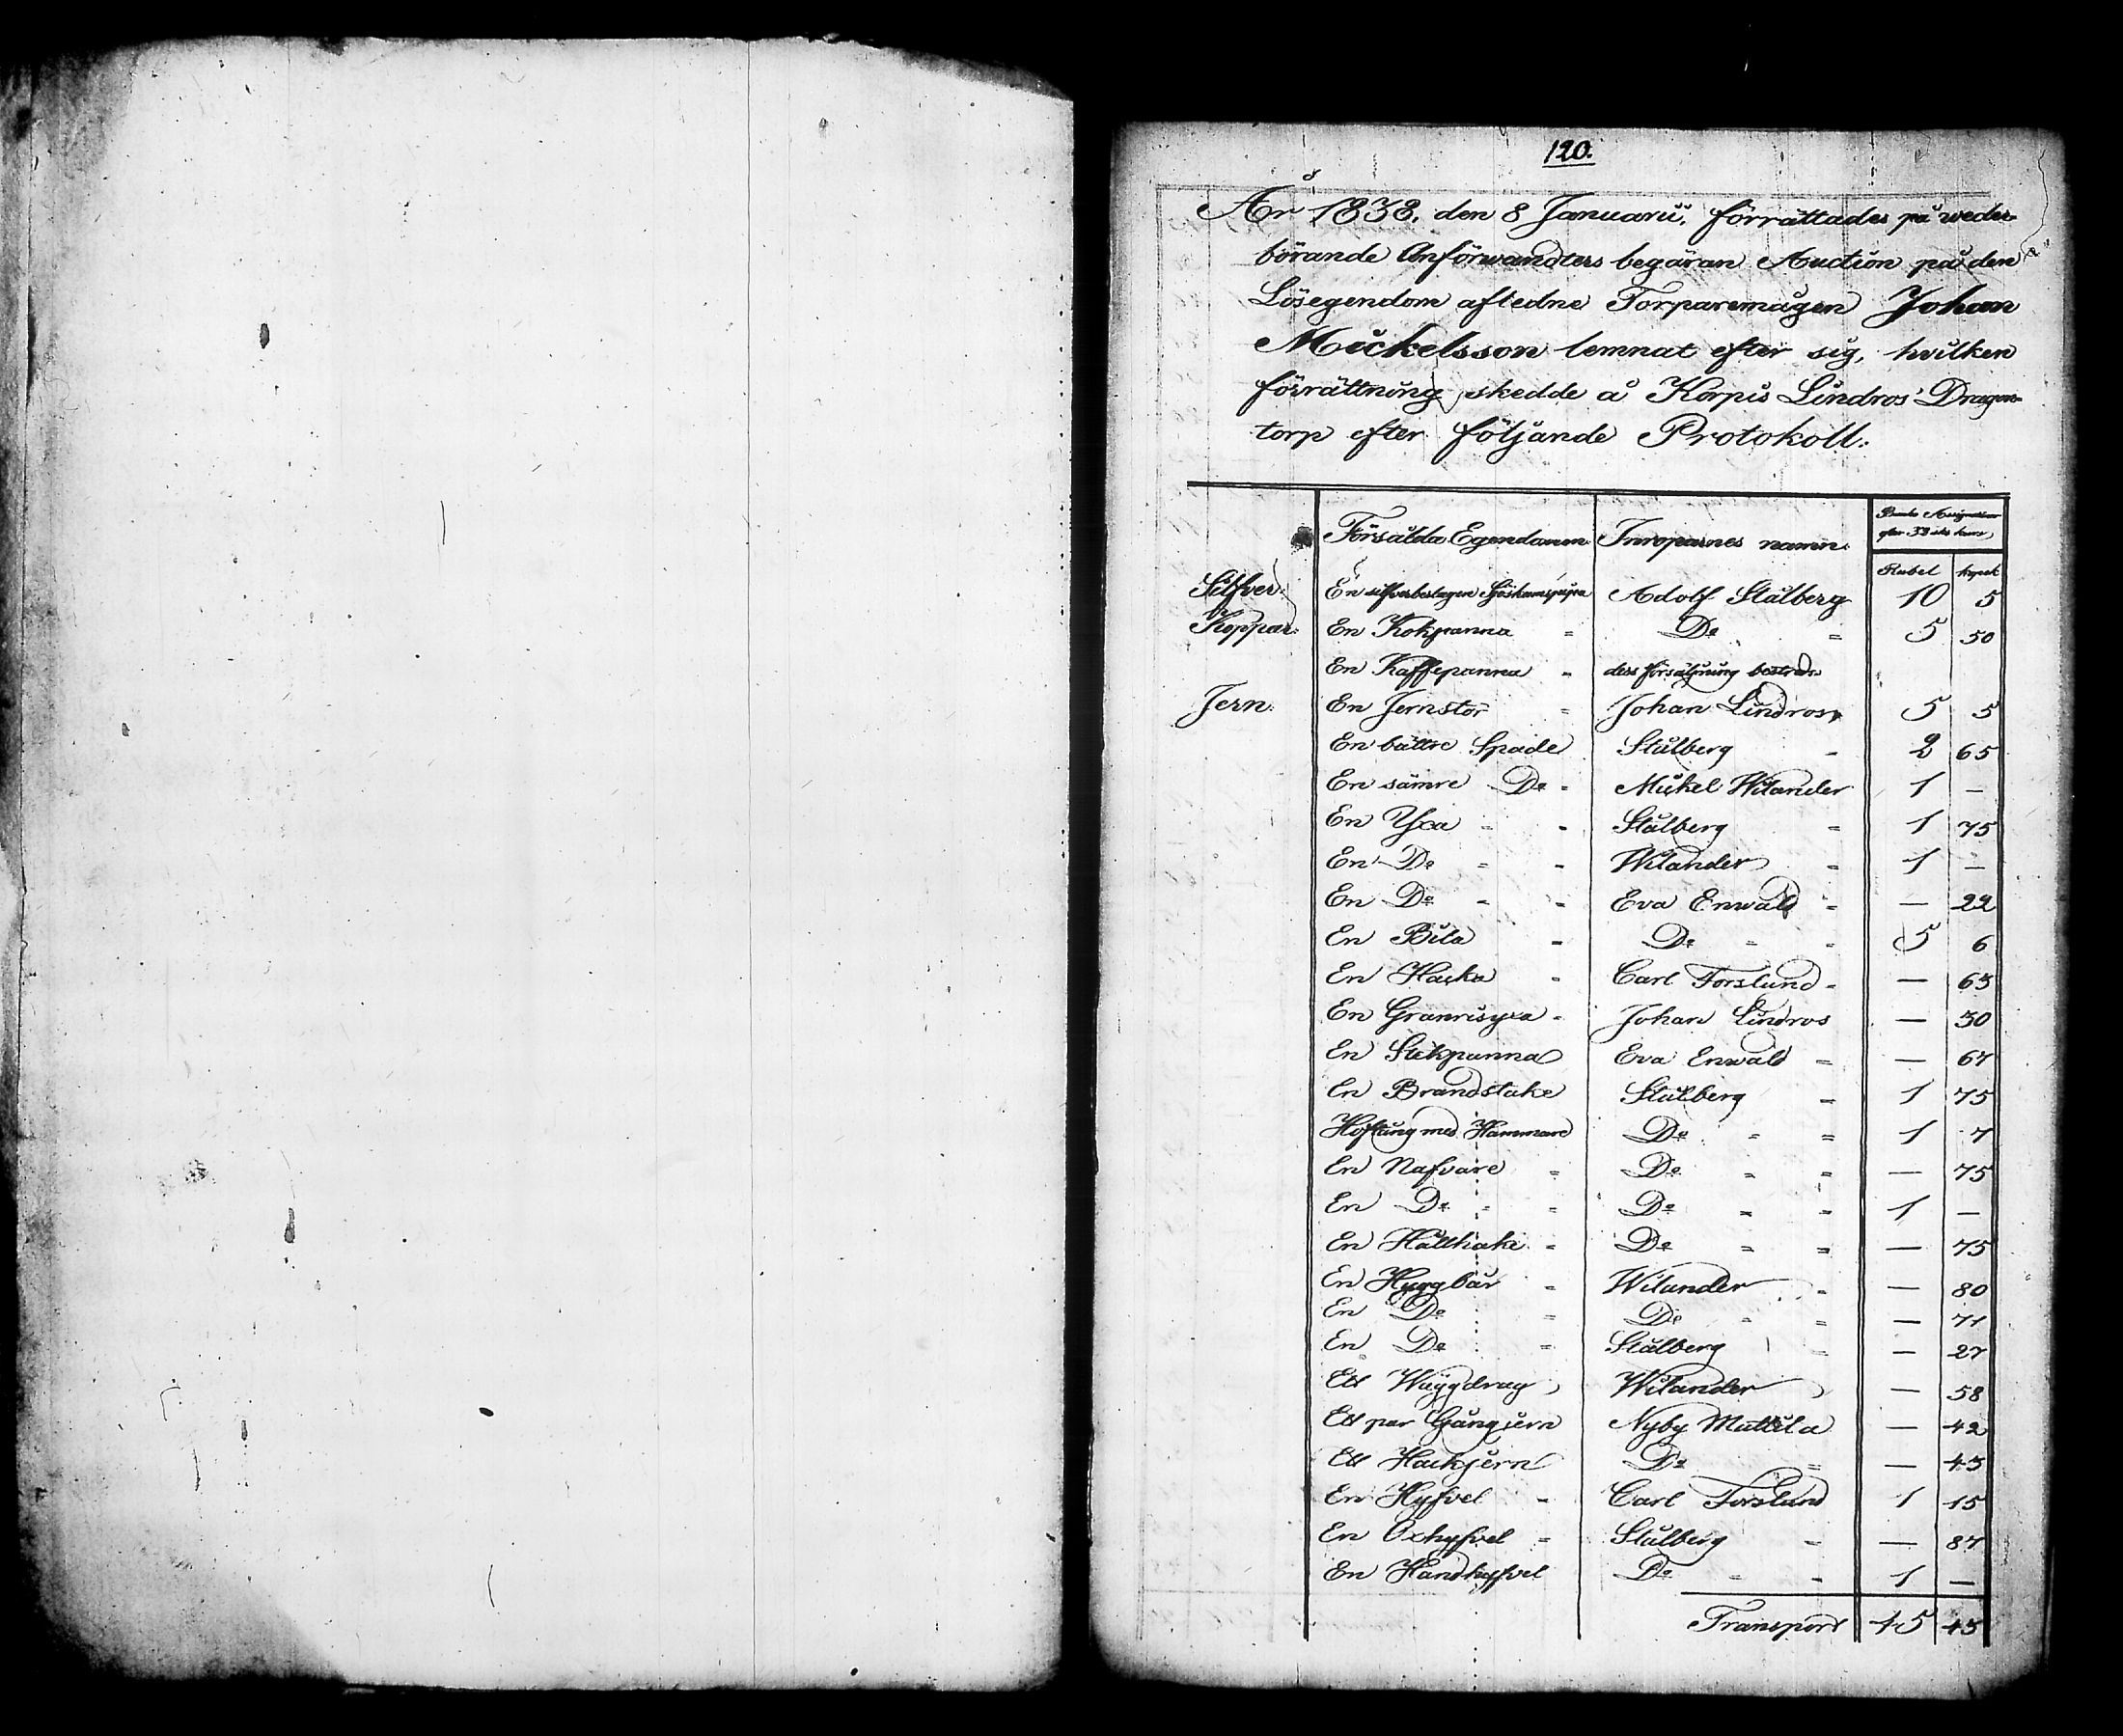 120.
År 1838, den 8 Januarii, förrättades på weder-
börande Anförwandters begäran Auction på den
Lösegendom afledne Torparemågen Johan
Mickelsson lemnat efter sig, hvilken
förrättning skedde å Korpis Lindros Dragon-
torp efter följande Protokoll:
Försålda Egendomen Inroparnes namn. Banko Assignationer
efter 33 kurs
Rubel kopek
Silfver: En silfverbeslagen Sjöskumspipa Adolf Stålberg 10 5
Koppar: En Kokpanna = Do = 5 50
En Kaffepanna - dess försäljning bestreds
Jern: En Jernstör = Johan Lindros 5 5
En bättre Spade Stålberg - 2 65
En sämre Do - Mickel Wilander 1 —
En Yxa - - Stålberg = 1 75
En Do = - Wilander = 1 —
En Do - - Eva Enwald = — 22
En Bila - Do - - 5 6
En Hacka - Carl Forslund - — 63
En Granrisyxa - Johan Lindros — 50
En Stekpanna Eva Enwald = — 67
En Brandstake Stålberg = 1 75
Hoftång med Hammare Do - = 1 7
En Nafvare = Do - = — 75
En Do - = Do = - 1 —
En Hållhake - Do = = — 75
En Huggbår - Wilander - — 80
En Do = Do - = — 71
En Do = Stålberg = — 27
Ett Wäggdrag Wilander — 58
Ett par Gångjern Nyby Mattila — 42
Ett Hackjern Do = — 43
En Hyfvel - Carl Forslund 1 15
En Oxhyfvel = Stålberg = — 87
En Handhyfvel Do - - 1 —
Transport 45 43